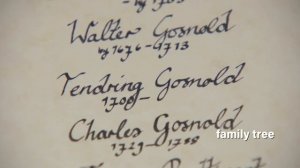 Walter Gosnold
by 1676-1713
Tendring Gosnold
1708-
Charles Gosnold
1729-1788
family tree